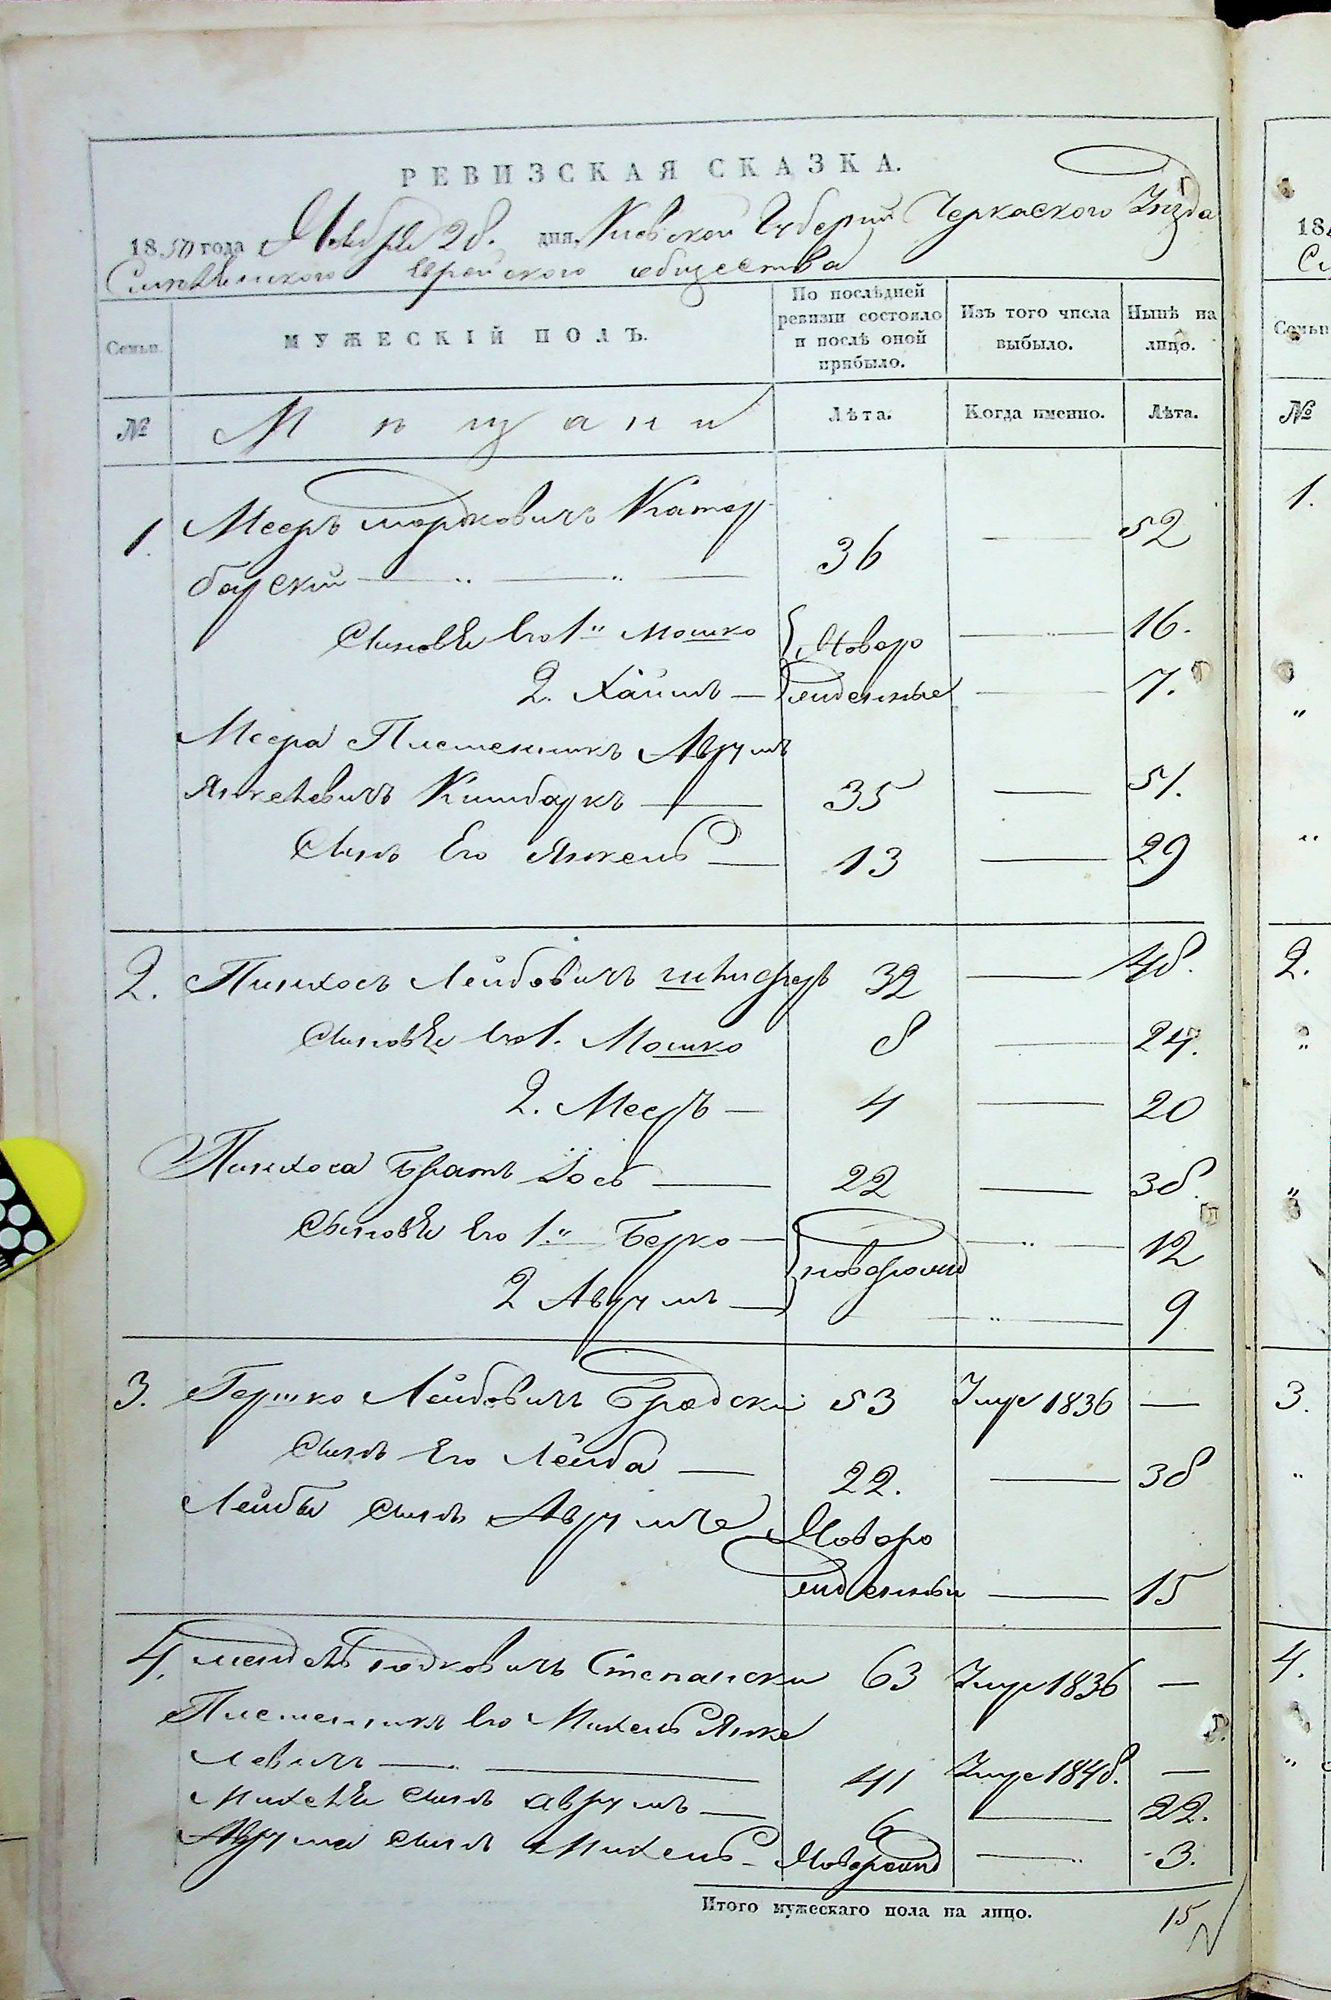 РЕВИЗСКАЯ СКАЗКА.
1850 года Октября 28. дня, Киевской Губернии Черкаского Уѣзда
Смѣлянского Еврейского общества
Семьи.
МУЖЕСКІЙ ПОЛЪ.
По послѣдней ревизіи состояло и послѣ оной прибыло.
Изъ того числа выбыло.
Ныне на лицо.
№
Мѣщани
Лѣта.
Когда именно.
Лѣта.
1. Мееръ Мордковичъ Катер
барский 36 52
Сыновья Его 1. Мошко Новоро 16.
2. Хаимъ жденные 7.
Меера Племенникъ Аврумъ
Янкелевичъ Кимбаркъ 35 51.
Сынъ Его Янкель 13 29
2. Пинхосъ Лейбовичъ 32 48.
Сыновья Его 1. Мошко 8 24.
2. Мееръ 4 20
Пинхоса Братъ Іось 22 38.
Сыновья Его 1. Берко новорожд 12
2 Аврумъ 9
3. Гершко Лейбовичъ Бродски 53 Умре 1836
Сынъ Его Лейба 22. 38
Лейбы сынъ Аврумъ Новоро
жденный 15
4. Мендель Юдковичъ Степански 63 Умре 1836
Племенникъ Его Михель Янке
левичъ 41 Умре 1848.
Михеля сынъ Аврумъ 6 22.
Аврума сынъ Михель Наворожд 3.
Итого мужескаго пола на лицо. 15
18
См
Семьи
№
1.
"
"
2.
"
"
3.
"
4.
"